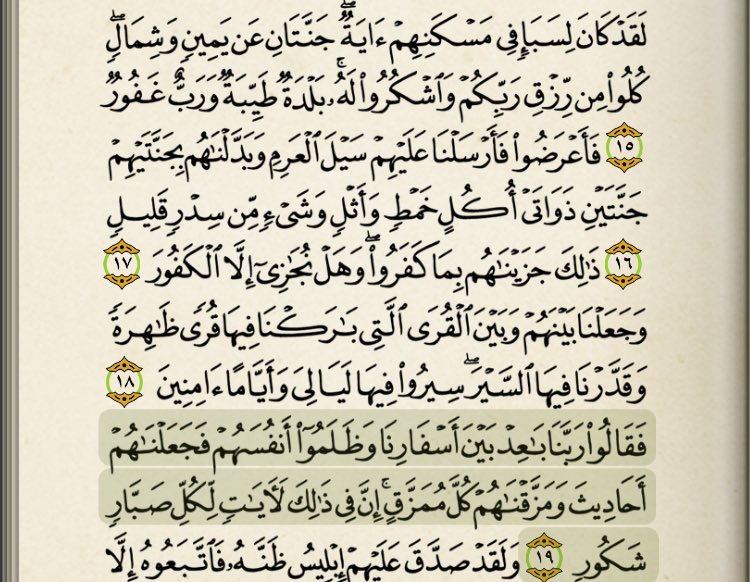 لَقَدْ كَانَ لِسَبَإٍ فِى مَسْكَنِهِمْ ءَايَةٌ ۖ جَنَّتَانِ عَن يَمِينٍ وَشِمَالٍ ۖ
كُلُوا۟ مِن رِّزْقِ رَبِّكُمْ وَٱشْكُرُوا۟ لَهُۥ ۚ بَلْدَةٌ طَيِّبَةٌ وَرَبٌّ غَفُورٌ
١٥ فَأَعْرَضُوا۟ فَأَرْسَلْنَا عَلَيْهِمْ سَيْلَ ٱلْعَرِمِ وَبَدَّلْنَٰهُم بِجَنَّتَيْهِمْ
جَنَّتَيْنِ ذَوَاتَىْ أُكُلٍ خَمْطٍ وَأَثْلٍ وَشَىْءٍ مِّن سِدْرٍ قَلِيلٍ
١٦ ذَٰلِكَ جَزَيْنَٰهُم بِمَا كَفَرُوا۟ ۖ وَهَلْ نُجَٰزِىٓ إِلَّا ٱلْكَفُورَ ١٧
وَجَعَلْنَا بَيْنَهُمْ وَبَيْنَ ٱلْقُرَى ٱلَّتِى بَٰرَكْنَا فِيهَا قُرًى ظَٰهِرَةً
وَقَدَّرْنَا فِيهَا ٱلسَّيْرَ ۖ سِيرُوا۟ فِيهَا لَيَالِىَ وَأَيَّامًا ءَامِنِينَ ١٨
فَقَالُوا۟ رَبَّنَا بَٰعِدْ بَيْنَ أَسْفَارِنَا وَظَلَمُوٓا۟ أَنفُسَهُمْ فَجَعَلْنَٰهُمْ
أَحَادِيثَ وَمَزَّقْنَٰهُمْ كُلَّ مُمَزَّقٍ ۚ إِنَّ فِى ذَٰلِكَ لَءَايَٰتٍ لِّكُلِّ صَبَّارٍ
شَكُورٍ ١٩ وَلَقَدْ صَدَّقَ عَلَيْهِمْ إِبْلِيسُ ظَنَّهُۥ فَٱتَّبَعُوهُ إِلَّا